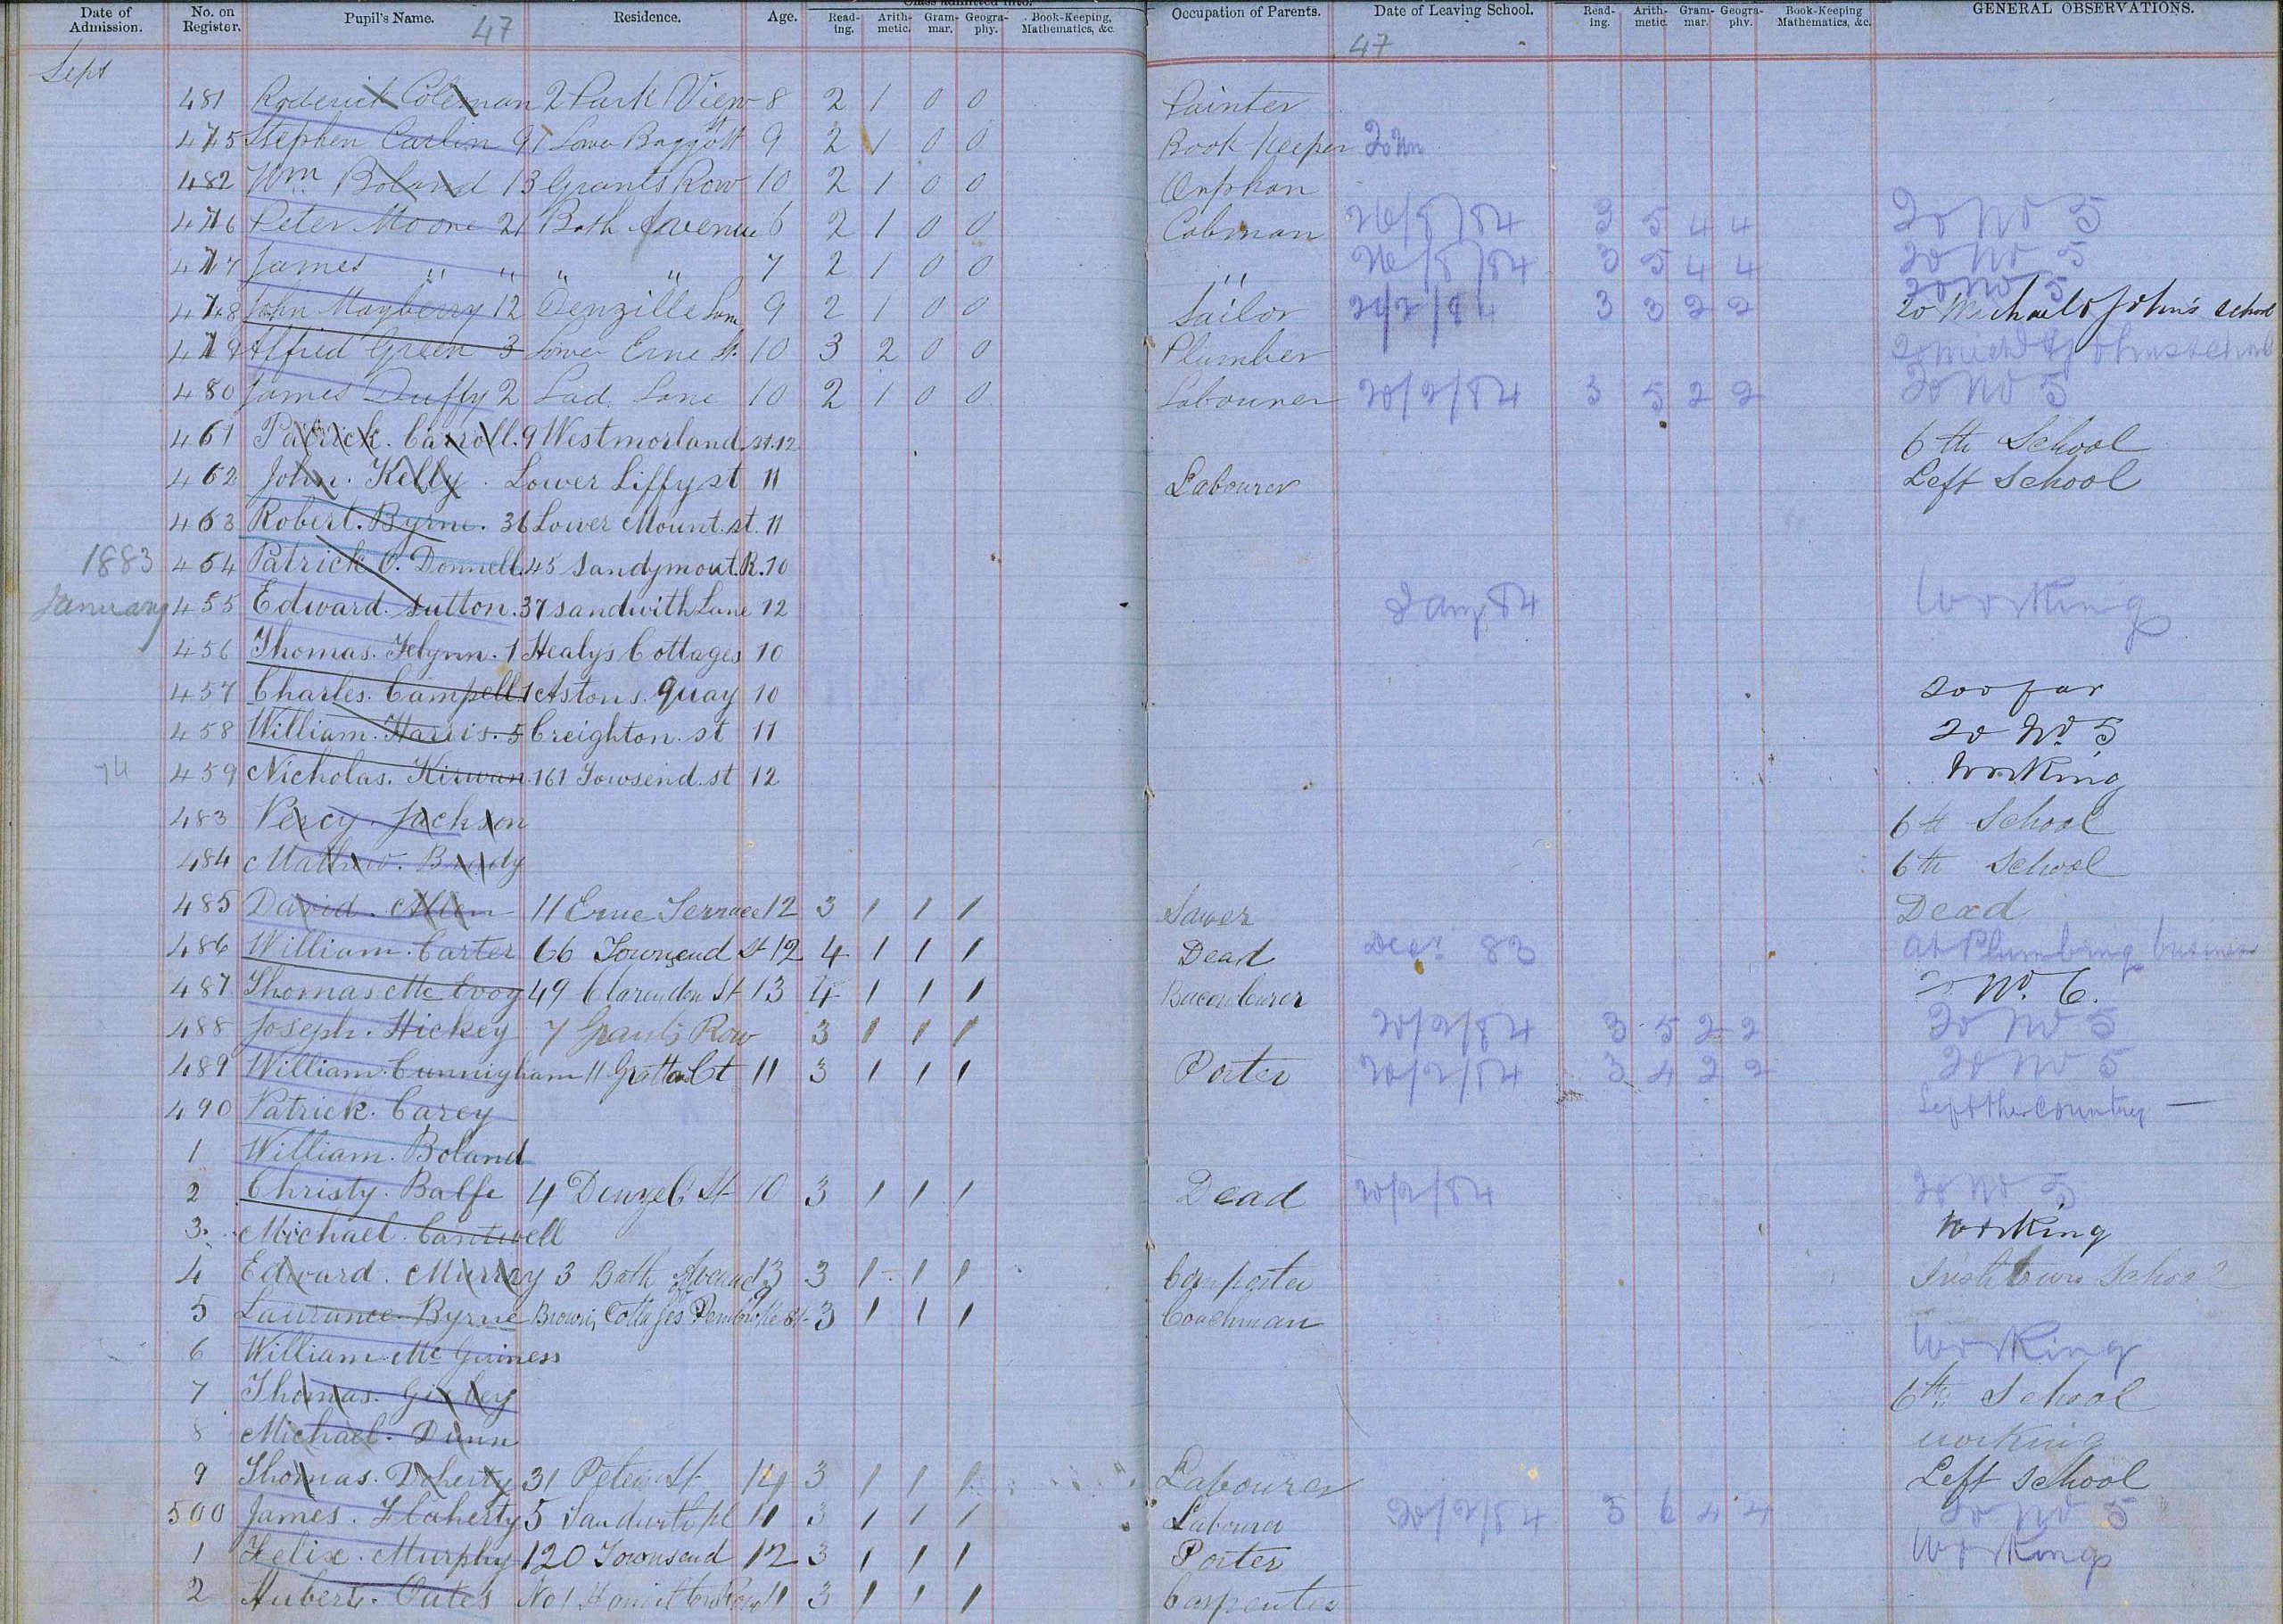 Date of Admission. No. on Register. Pupil's Name. Residence. Age. Class admitted into. Read-ing. Arith-metic. Gram-mar. Geogra-phy. Book-Keeping, Mathematics, &c. Occupation of Parents. Date of Leaving School. Read-ing. Arith-metic. Gram-mar. Geogra-phy. Book-Keeping Mathematics, &c. GENERAL OBSERVATIONS.
47 47
Sept
481 Roderick Coleman 2 Park View 8 2 1 0 0 Painter
475 Stephen Carlin 91 Lower Baggott St 9 2 1 0 0 Book Keeper
482 Wm Boland 13 Grants Row 10 2 1 0 0 Orphan
476 Peter Moore 21 Bath Avenue 6 2 1 0 0 Cabman 26/8/84 3 5 4 4 To No 5
477 James " " " " 7 2 1 0 0 " 26/8/84 3 5 4 4 To No 5
To No 5
478 John Mayberry 12 Denzille Lane 9 2 1 0 0 Sailor 3 3 2 2 To Michael & John's School
479 Alfred Green 3 Lower Erne St. 10 3 2 0 0 Plumber To Michl & Johns School
480 James Duffy 2 Lad Lane 10 2 1 0 0 Labourer 20/2/84 3 5 2 2 To No 5
461 Patrick. Carroll. 9 Westmorland. st. 12 6th School
462 John. Kelly. Lower Liffy st 11 Labourer Left School
463 Robert. Byrne. 36 Lower Mount. st. 11
1883 454 Patrick O. Donnell. 45 Sandymout. R. 10
January 455 Edward. Sutton. 37 Sandwith Lane 12 Jany 84 Working
456 Thomas. Flynn. 1 Healys Cottages 10
457 Charles. Campell. 1 Astons. Quay 10 Too far
458 William. Harris. 5 Creighton. st 11 To No. 5
459 Nicholas. Kirwan. 161 Towsend. st 12 Working
483 Percy. Jackson 6th School
484 Mathew. Brady 6th School
485 David. Allen 11 Erne Terrace 12 3 1 1 1 Sawer Dead
486 William. Carter 66 Townsend St 12 4 1 1 1 Dead Decr 83 At Plumbing business
487 Thomas Mc Evoy 49 Clarendon St 13 4 1 1 1 Bacon Curer To No. 6.
488 Joseph. Hickey 7 Grants Row 3 1 1 1 20/2/84 3 5 2 2 To No 5
489 William. Cunnigham 11 Grattan Ct 11 3 1 1 1 Porter 20/2/84 3 4 2 2 To No 5
490 Patrick. Carey Left the Country —
1 William. Boland
2 Christy. Balfe 4 Denzel St 10 3 1 1 1 Dead 20/2/84 To No 5
3. Michael. Cantwell Working
4 Edward. Murray 3 Bath Avenue 13 3 1 1 1 Irishtown School
5 Laurance. Byrne Browns Cottages Pembroke St 3 1 1 1 Coachman
6 William. Mc Guiness Working
7 Thomas. 6th School
8 Michael. Dunn working
9 Thomas. Doherty 31 Peters St 14 3 1 1 1 Labourer Left School
500 James. Flaherty 5 Sandwith pl 11 3 1 1 1 Labourer 20/2/84 5 6 4 4 To No 5
1 Felix. Murphy 120 Townsend 12 3 1 1 1 Porter Working
2 Hubert. Oates No 1 Hamilton Row 11 3 1 1 1 Carpenter